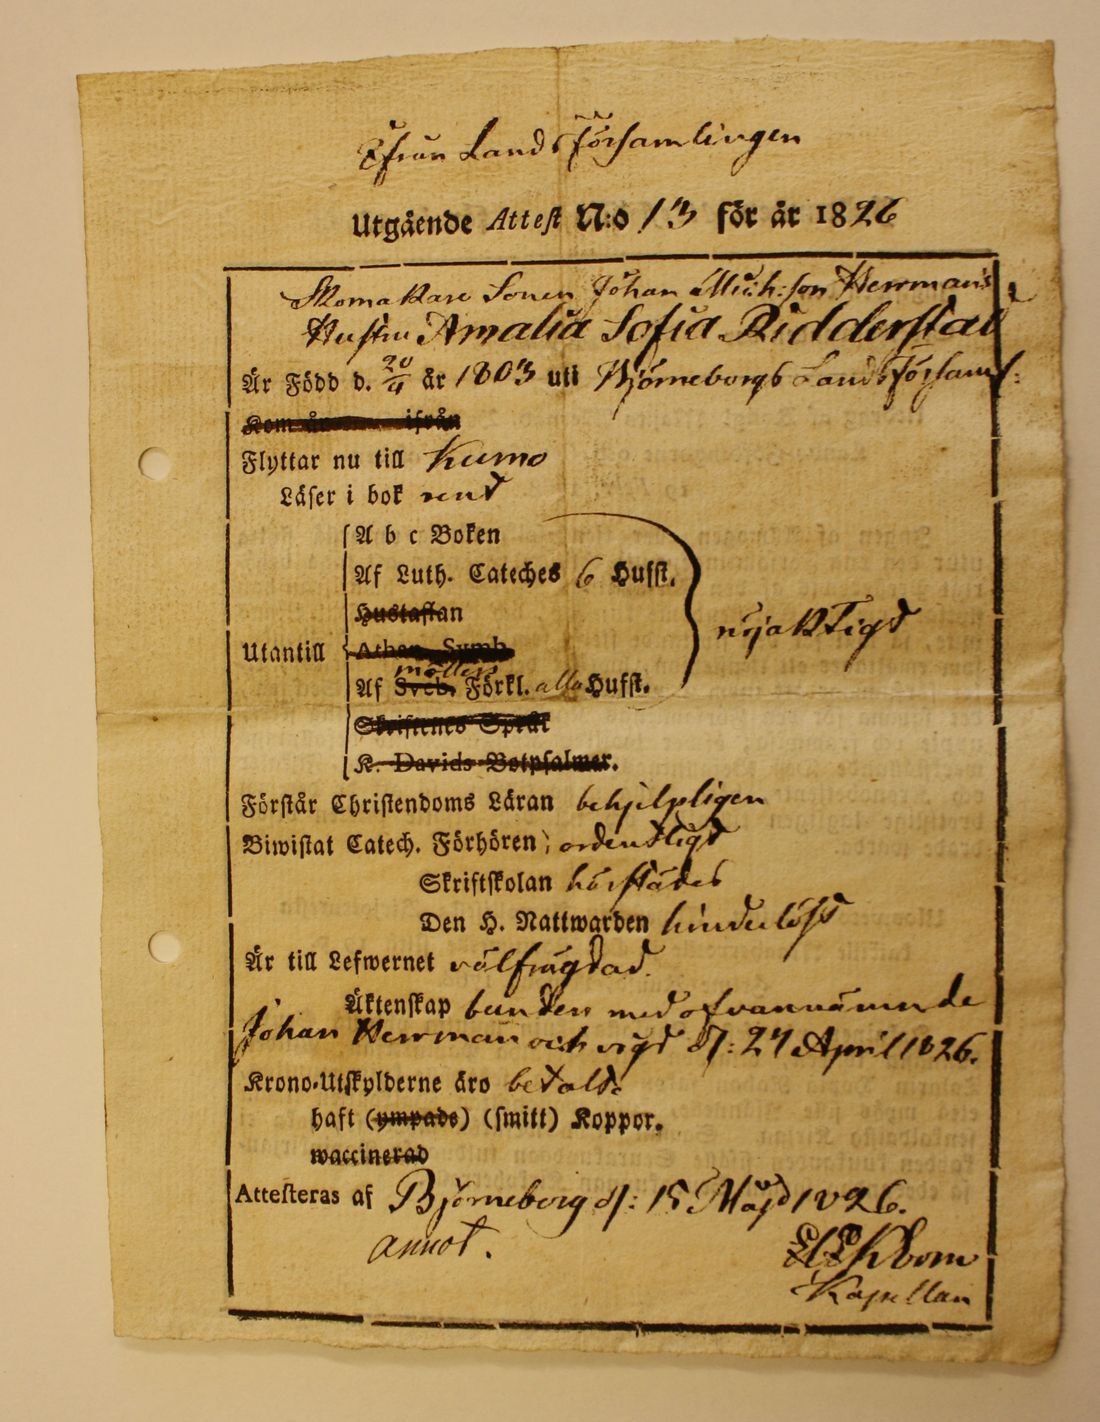 Ifrån Lands Församlingen
Utgående Attest N:o 13 för år 1826
Skomakare Sonen Johan Mich:son Herrmans
Hustru Amalia Sofia Ridderstad
Är Född d. 20/4 år 1803 uti Björneborgs Lands Församl:
Kom år ifrån
Flyttar nu till Kumo
Läser i bok rent
A b c Boken
Af Luth. Cateches 6 Hufst.
Hustaflan
Utantill Athan. Symb. nöjaktigt
möllers
Af Sveb. Förkl. alla Hufst.
Skriftenes Språk
K. Davids Botpsalmer.
Förstår Christendoms Läran behjelpligen
Biwistat Catech. Förhören; ordentligt
Skriftskolan härstädes
Den H. Nattwarden hinderlöst
Är till Lefwernet välfrägdad.
Äktenskap bunden med ofvannämnde
Johan Herrman och vigd d: 27 April 1826.
Krono-Utskylderne äro betalde
haft (ympade) (smitt) Koppor.
waccinerad
Attesteras af Björneborg d: 15 Maj 1826.
annot.
Kapellan